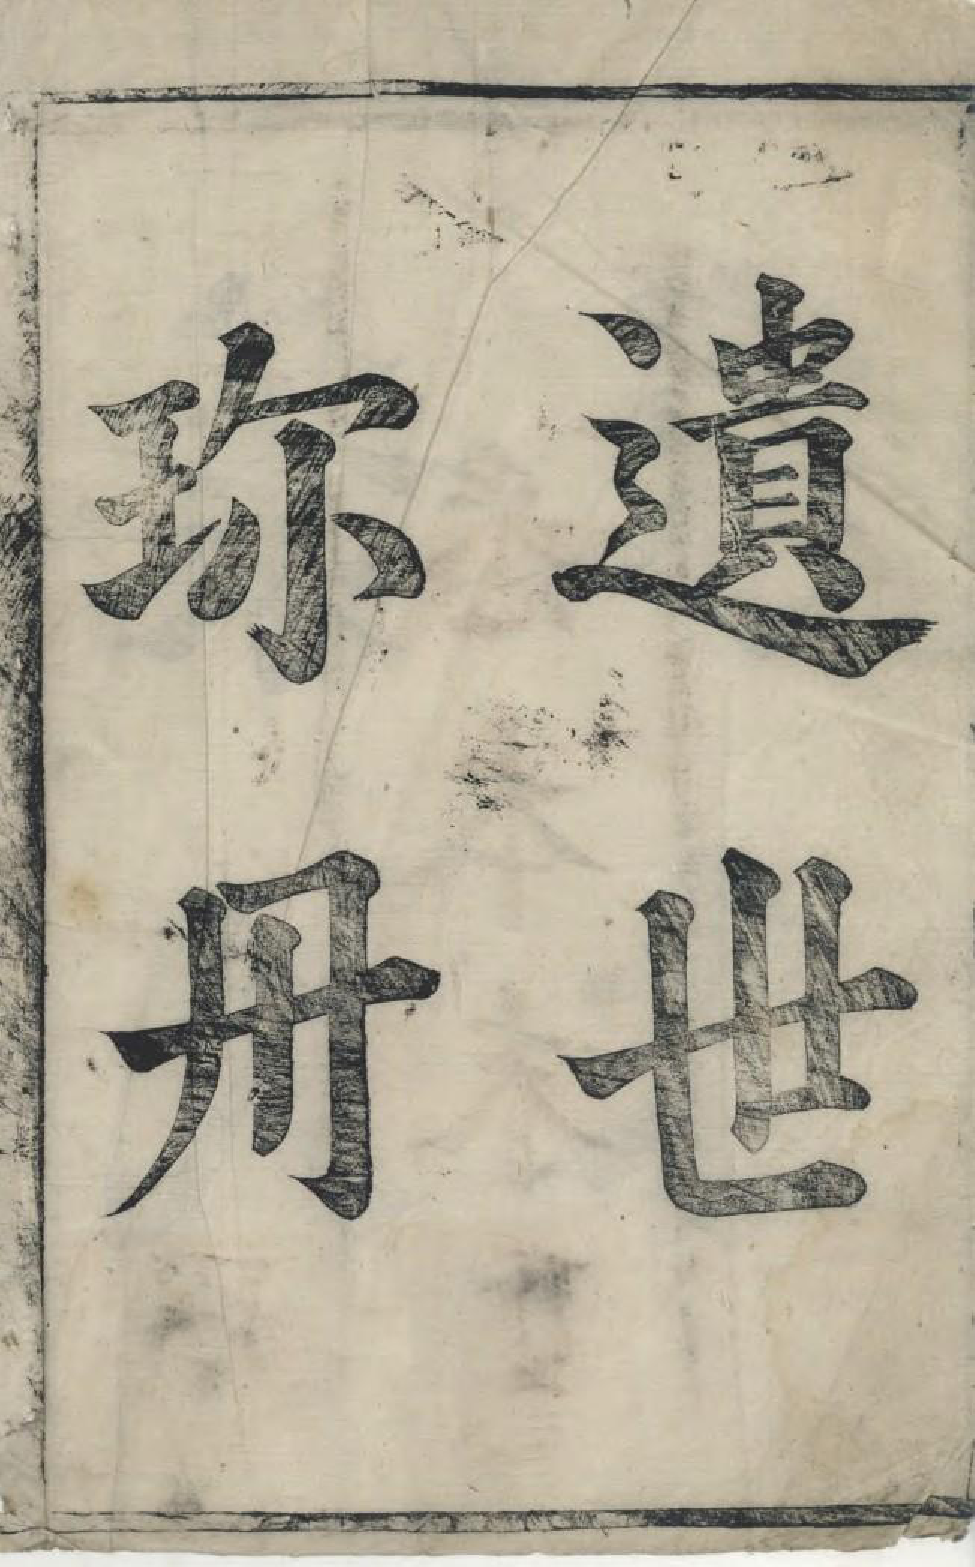 遺世
珎册